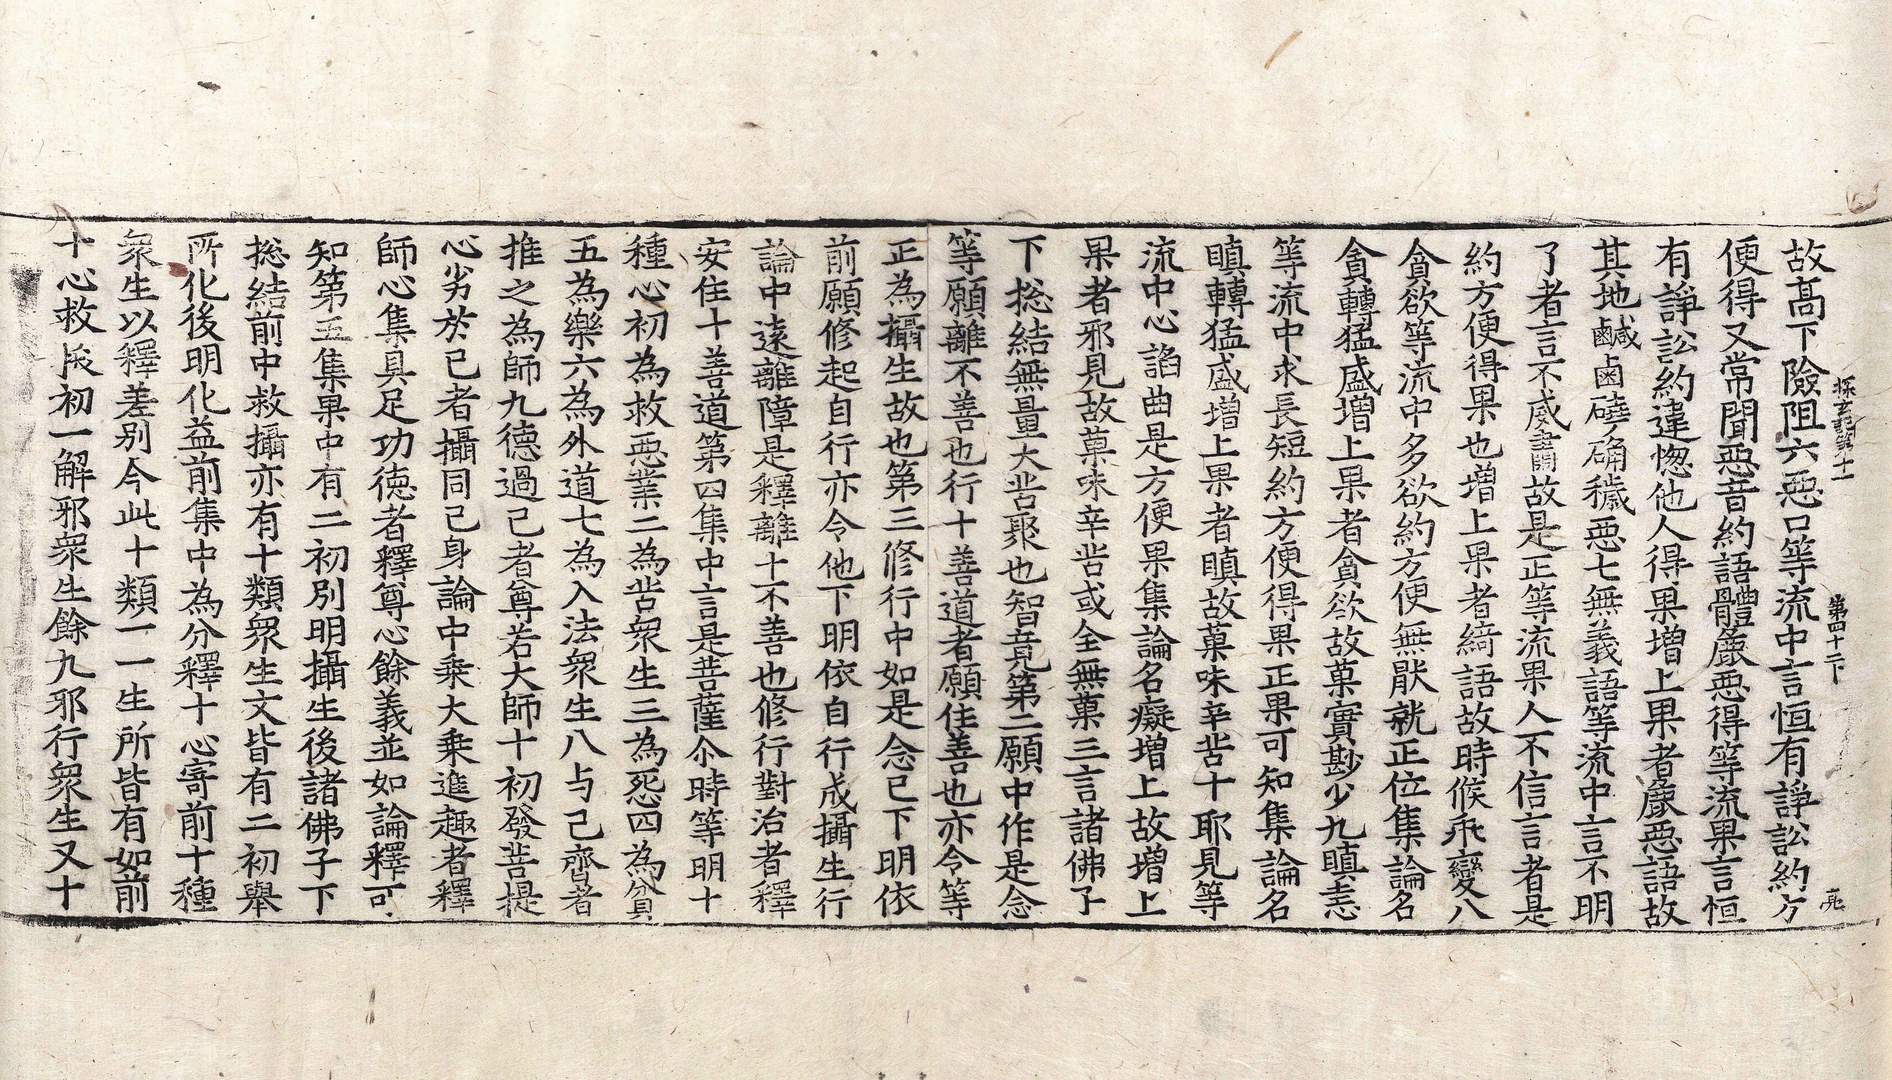 探玄記第十一　第四十二下　亮
故高下險阻六惡口等流中言恒有諍訟約方
便得又常聞惡音約語體麁惡得等流果言恒
有諍訟約違惱他人得果增上果者麁惡語故
其地鹹鹵磽确穢惡七無義語等流中言不明
了者言不威肅故是正等流果人不信言者是
約方便得果也增上果者綺語故時候乖變八
貪欲等流中多欲約方便無猒就正位集論名
貪轉猛盛增上果者貪欲故菓實尠少九瞋恚
等流中求長短約方便得果正果可知集論名
瞋轉猛盛增上果者瞋故菓味辛苦十耶見等
流中心諂曲是方便果集論名癡增上故增上
果者邪見故菓味辛苦或全無菓三言諸佛子
下捴結無量大苦聚也智竟第二願中作是念
等願離不善也行十善道者願住善也亦令等
正為攝生故也第三修行中如是念已下明依
前願修起自行亦令他下明依自行成攝生行
論中遠離障是釋離十不善也修行對治者釋
安住十善道第四集中言是菩薩尒時等明十
種心初為救惡業二為苦眾生三為怨四為貧
五為樂六為外道七為入法眾生八与己齊者
推之為師九德過己者尊若大師十初發菩提
心劣於己者攝同己身論中乘大乘進趣者釋
師心集具足功德者釋尊心餘義並如論釋可
知第五集果中有二初別明攝生後諸佛子下
捴結前中救攝亦有十類眾生文皆有二初舉
所化後明化益前集中為分釋十心寄前十種
眾生以釋差別今此十類一一生所皆有如前
十心救成初一解邪眾生餘九邪行眾生又十